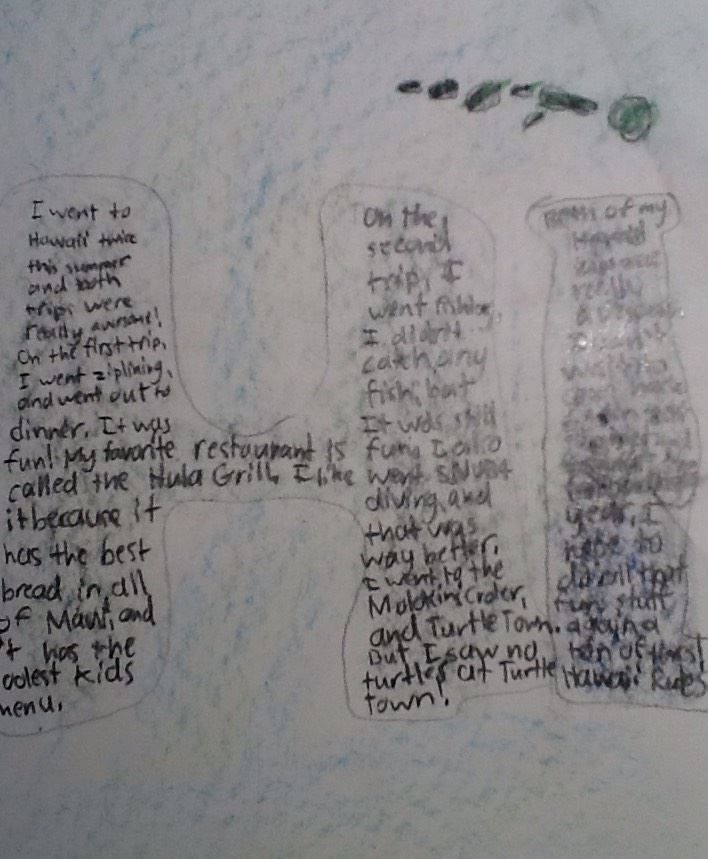 I went to
Hawaii twice
this summer
and both
trips were
really awesome!
On the first trip,
I went ziplining,
and went out to
dinner. It was
fun! My favorite restaurant is
called the Hula Grill, I like
it because it
has the best
bread in all
of Maui, and
it has the
coolest kids
menu.
On the
second
trip, I
went fishing,
I didn't
catch any
fish, but
It was still
fun, I also
went SNUBA
diving, and
that was
way better.
I went to the
Molokini Crater,
and Turtle Town.
But I saw no
turtles at Turtle
Town!
Both of my
Hawaii
trips were
really
I can't
wait to
year, I
hope to
do all that
fun stuff
again a
ton of times!
Hawaii Rules